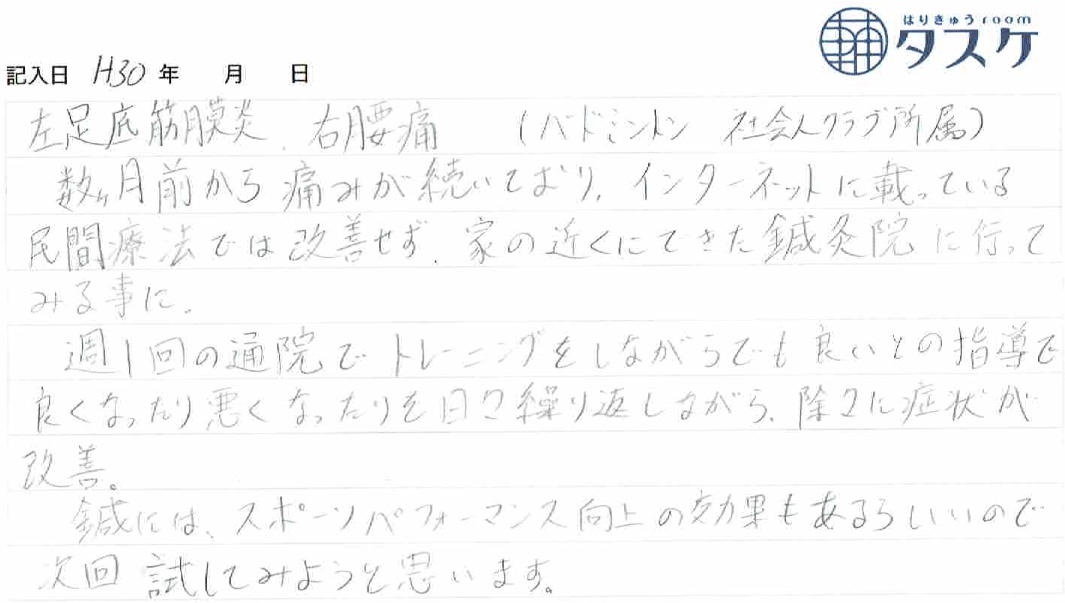 はりきゅうroom
タスケ
記入日 H30年 月 日
左足底筋膜炎、右腰痛 (バドミントン 社会人クラブ所属)
数ヶ月前から痛みが続いており、インターネットに載っている
民間療法では改善せず、家の近くにできた鍼灸院に行って
みる事に。
週1回の通院でトレーニングをしながらでも良いとの指導で
良くなったり悪くなったりを日々繰り返しながら、除々に症状が
改善。
鍼には、スポーツパフォーマンス向上の効果もあるらしいので
次回試してみようと思います。